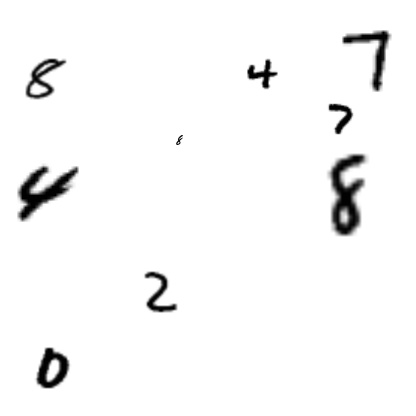 8 4 7
7
8
4 8
2
0